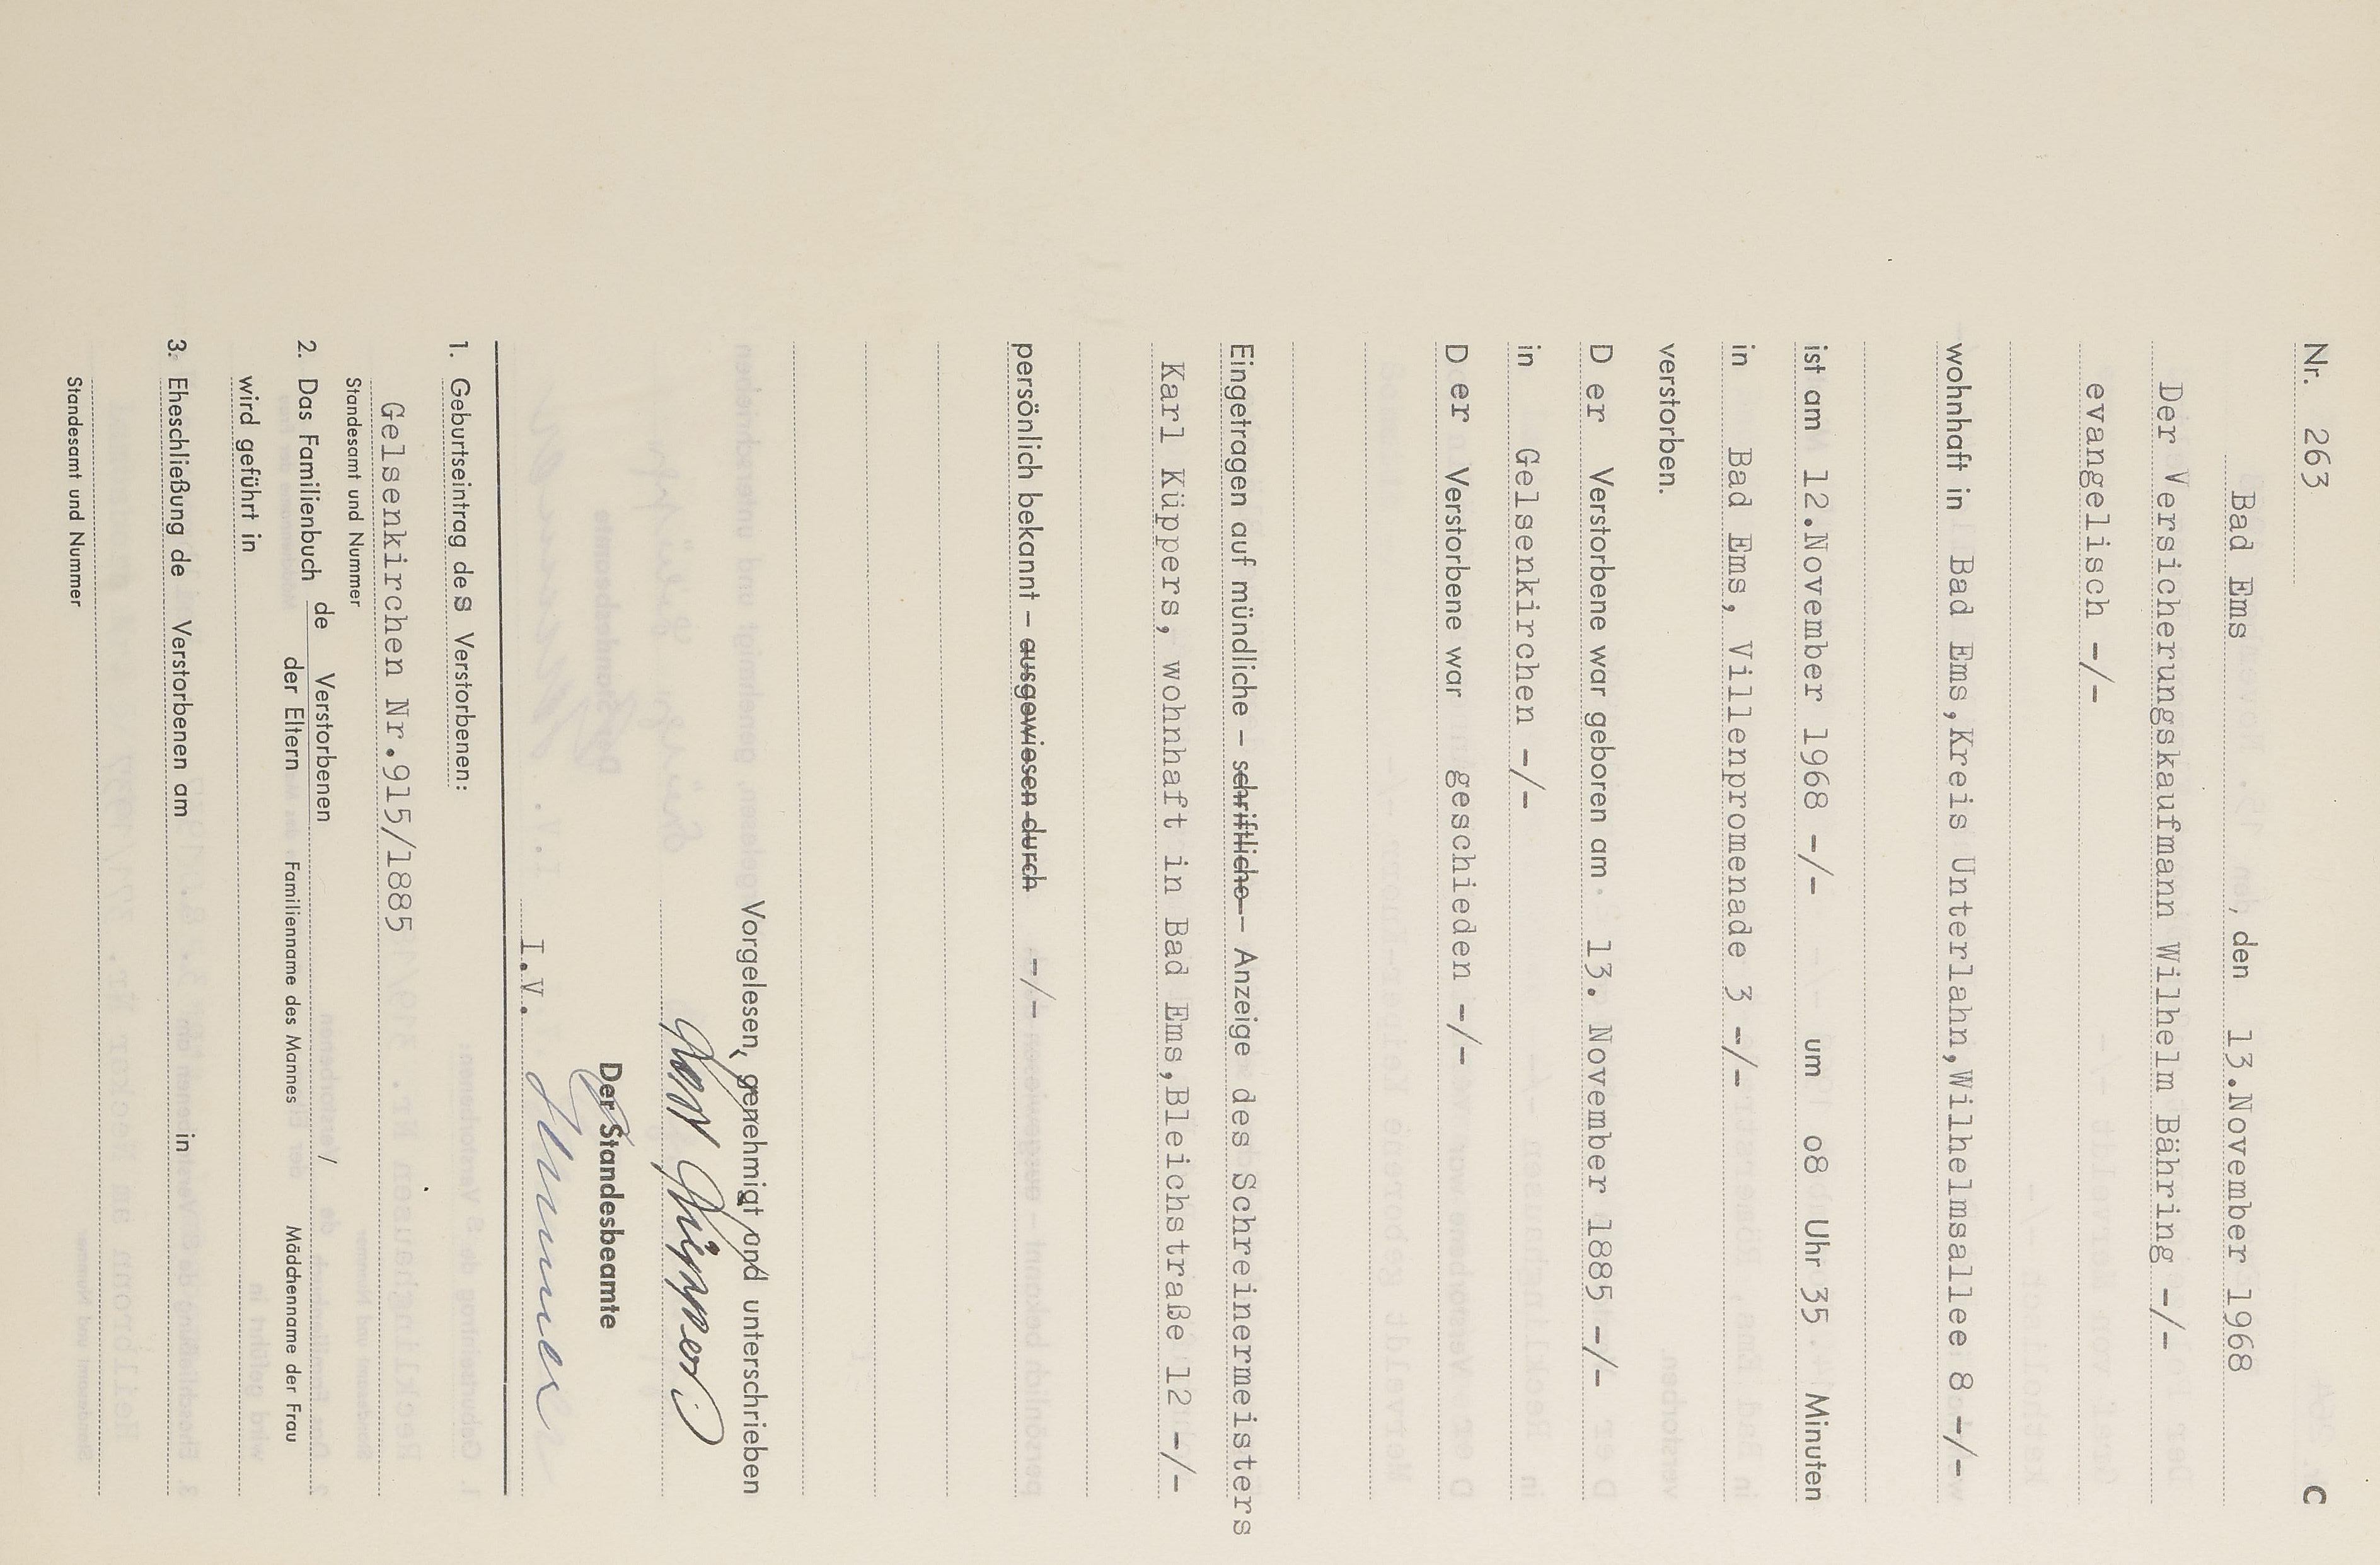 Nr. 263 C
Bad Ems, den 13.November 1968
Der Versicherungskaufmann Wilhelm Bähring -/-
evangelisch -/-
wohnhaft in Bad Ems,Kreis Unterlahn,Wilhelmsallee 8 -/-
ist am 12.November 1968 -/- um o8 Uhr 35 Minuten
in Bad Ems, Villenpromenade 3 -/-
verstorben.
D er Verstorbene war geboren am 13. November 1885 -/-
in Gelsenkirchen -/-
D er Verstorbene war geschieden -/-
Eingetragen auf mündliche – schriftliche – Anzeige des Schreinermeisters
Karl Küppers, wohnhaft in Bad Ems,Bleichstraße 12 -/-
persönlich bekannt – ausgewiesen durch -/-
Vorgelesen, genehmigt und unterschrieben
Karl Küppers
Der Standesbeamte
I.V.
1. Geburtseintrag des Verstorbenen:
Gelsenkirchen Nr.915/1885
Standesamt und Nummer
2. Das Familienbuch de Verstorbenen /
der Eltern Familienname des Mannes Mädchenname der Frau
wird geführt in
3. Eheschließung de Verstorbenen am in
Standesamt und Nummer